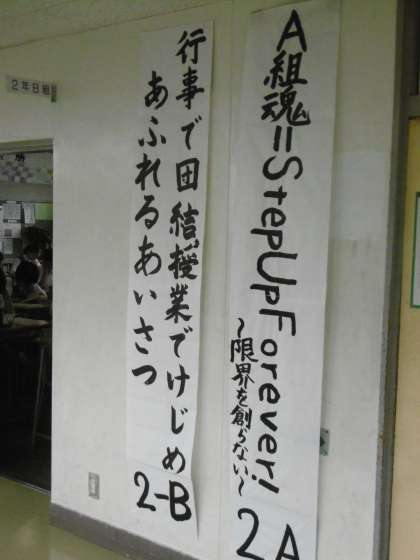 A組魂=StepUpForever!
～限界を創らない～
2A
行事で団結授業でけじめ
あふれるあいさつ
2-B
2年B組